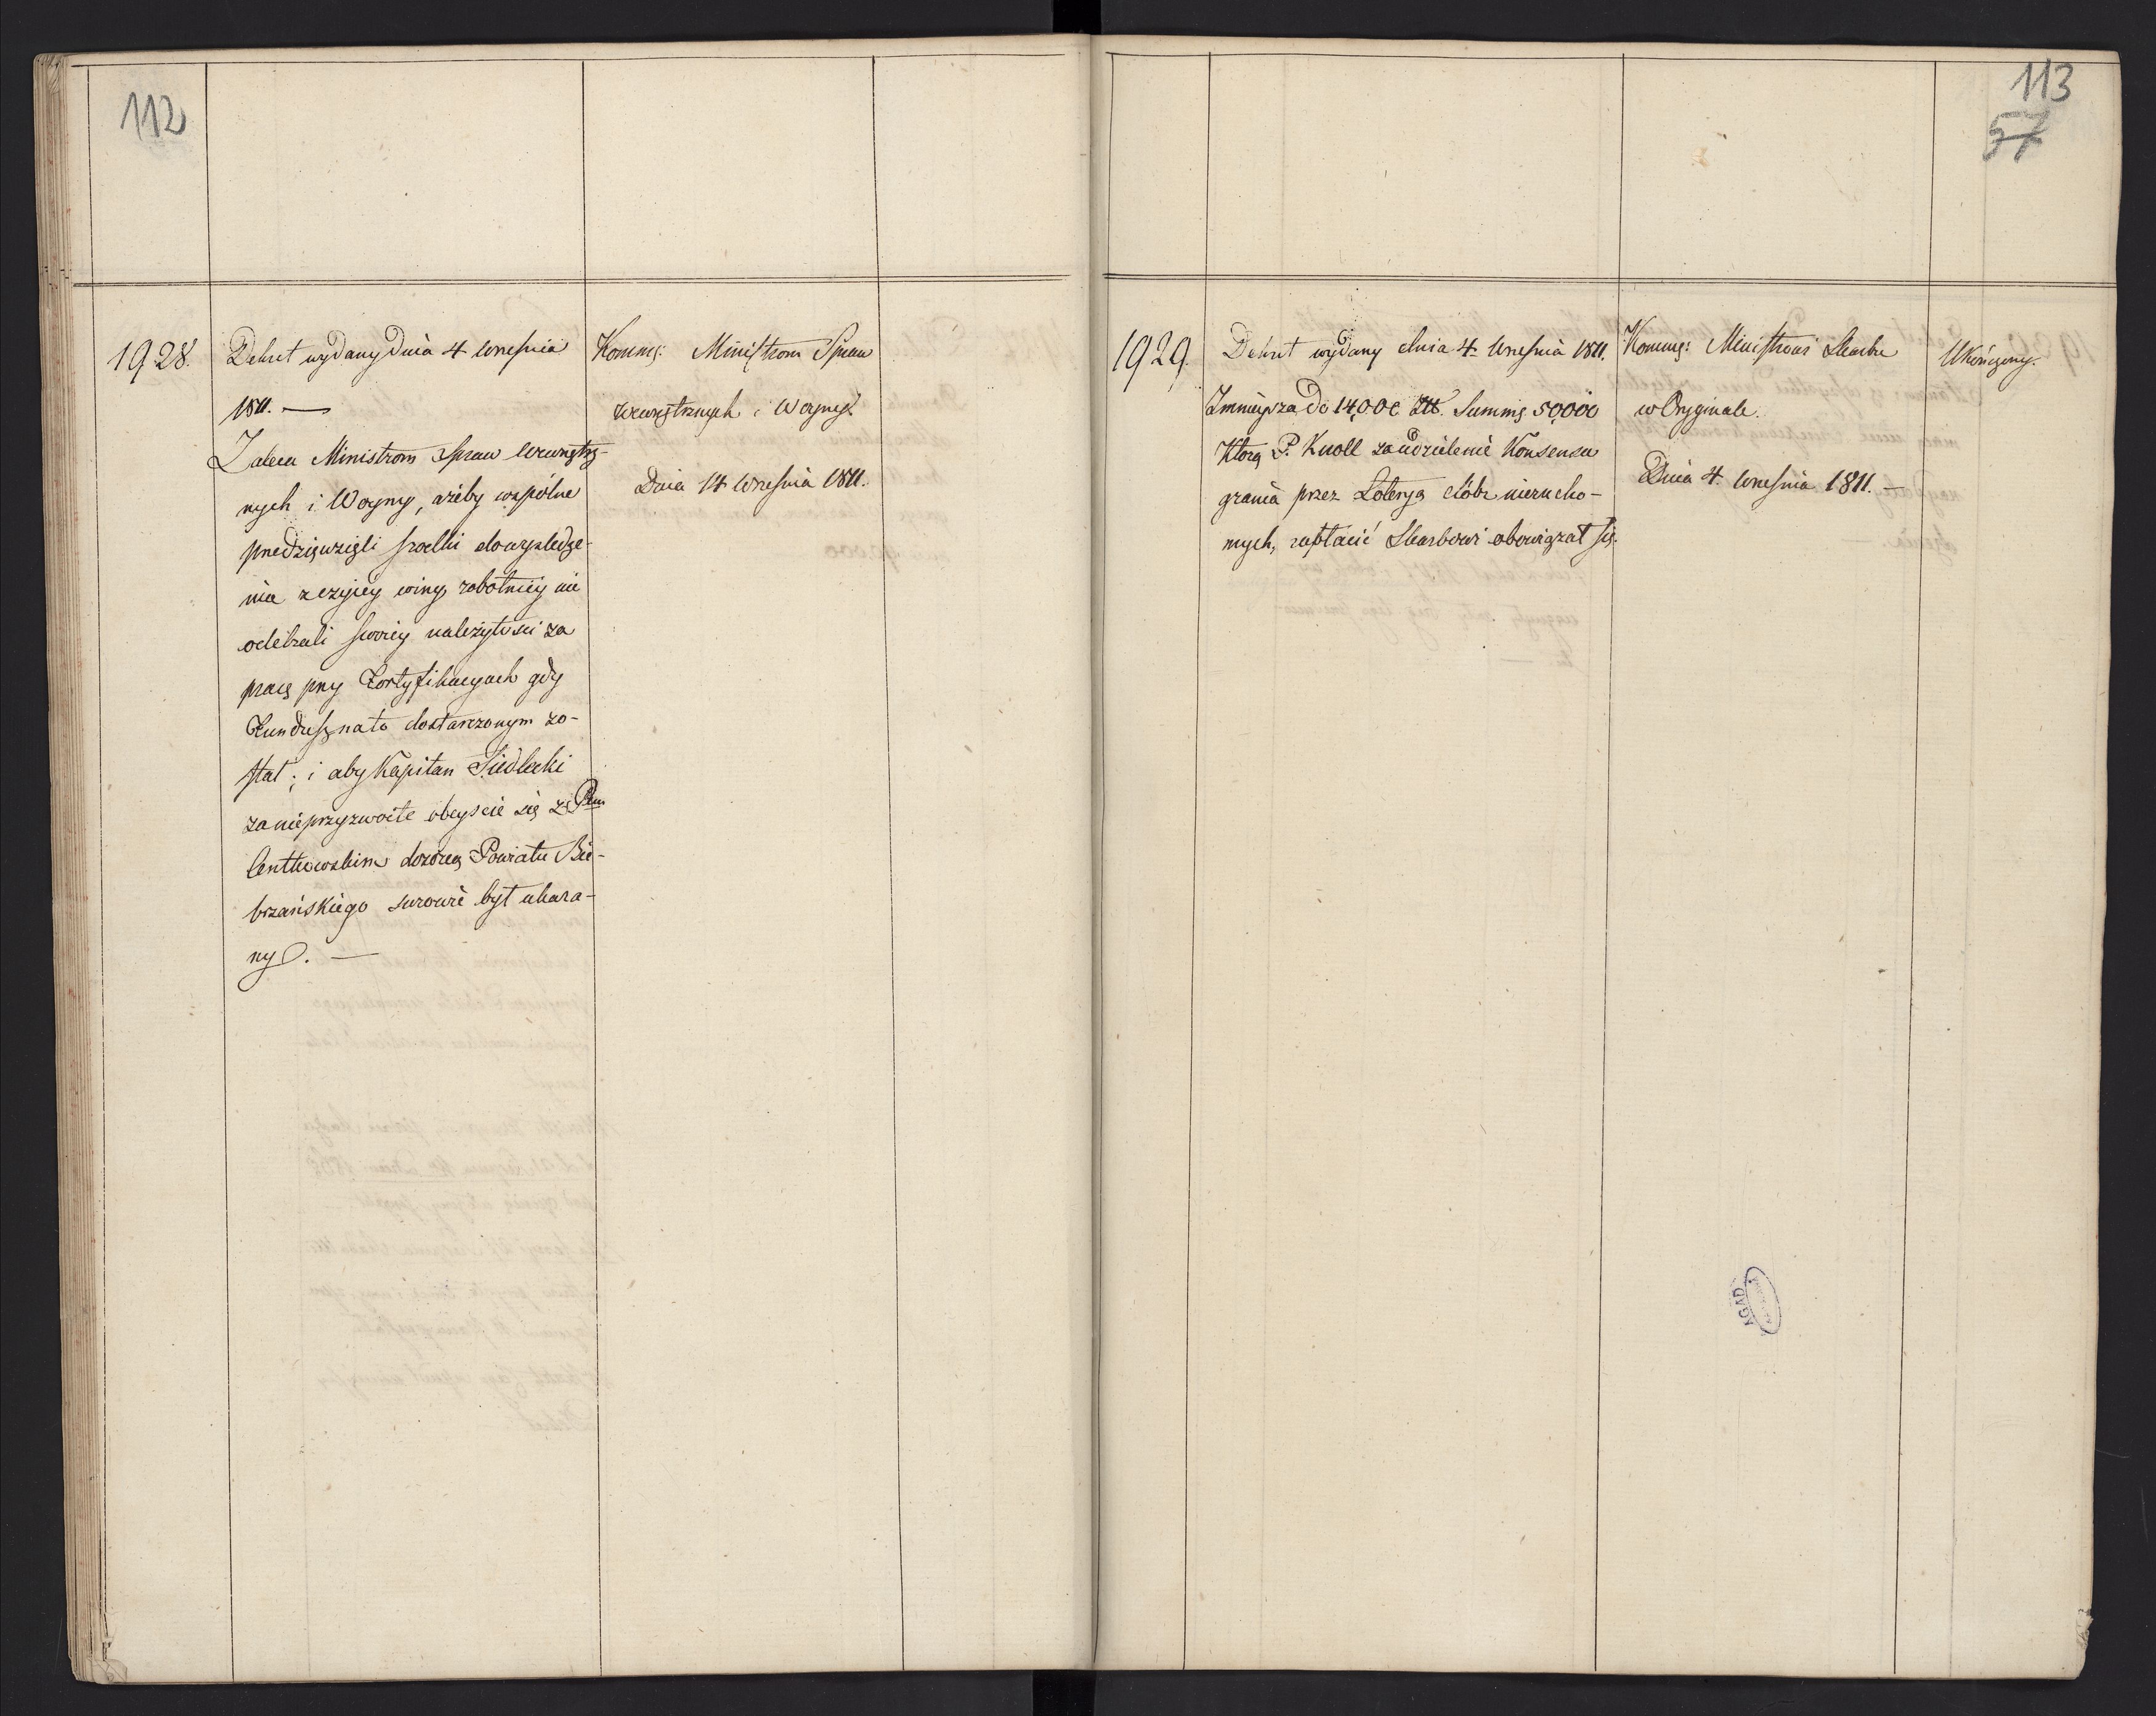 112
1928.
Dekret wydany dnia 4 Wresnia
1811. —
Zaleca Ministrom Spraw Wewnętrz-
nych i Woyny, ażeby wspólne
przedzięwzięli srodki dowysledze-
nia z czyiey winy robotnicy nie
odebrali swoiey należytosci za
pracę przy Fortyfikacyach gdy
Fundusz nato dostarczonym zo-
stał; i aby Kapitan Siedlecki
za nieprzyzwoite obeyscie się z Pem
dozorcą Powiatu Bie-
brzańskiego surowie był ukara-
ny. —
Kommę: Ministrom Spraw
Wewnętrznych i Woyny.
Dnia 14 Wresnia 1811.
113
57
1929.
Dekret wydany dnia 4. Wresnia 1811.
Zmnieysza do 14,000 Złł. Summę 50,000
Ktorą P. Knoll za udzielenie Konsensu
grania przez Loteryą dóbr nierucho-
mych, zapłacić Skarbowi obowiązał się.
Kommę: Ministrowi Skarbu
w Oryginale.
Dnia 4. Wresnia 1811. —
Ukończony.
AGAD